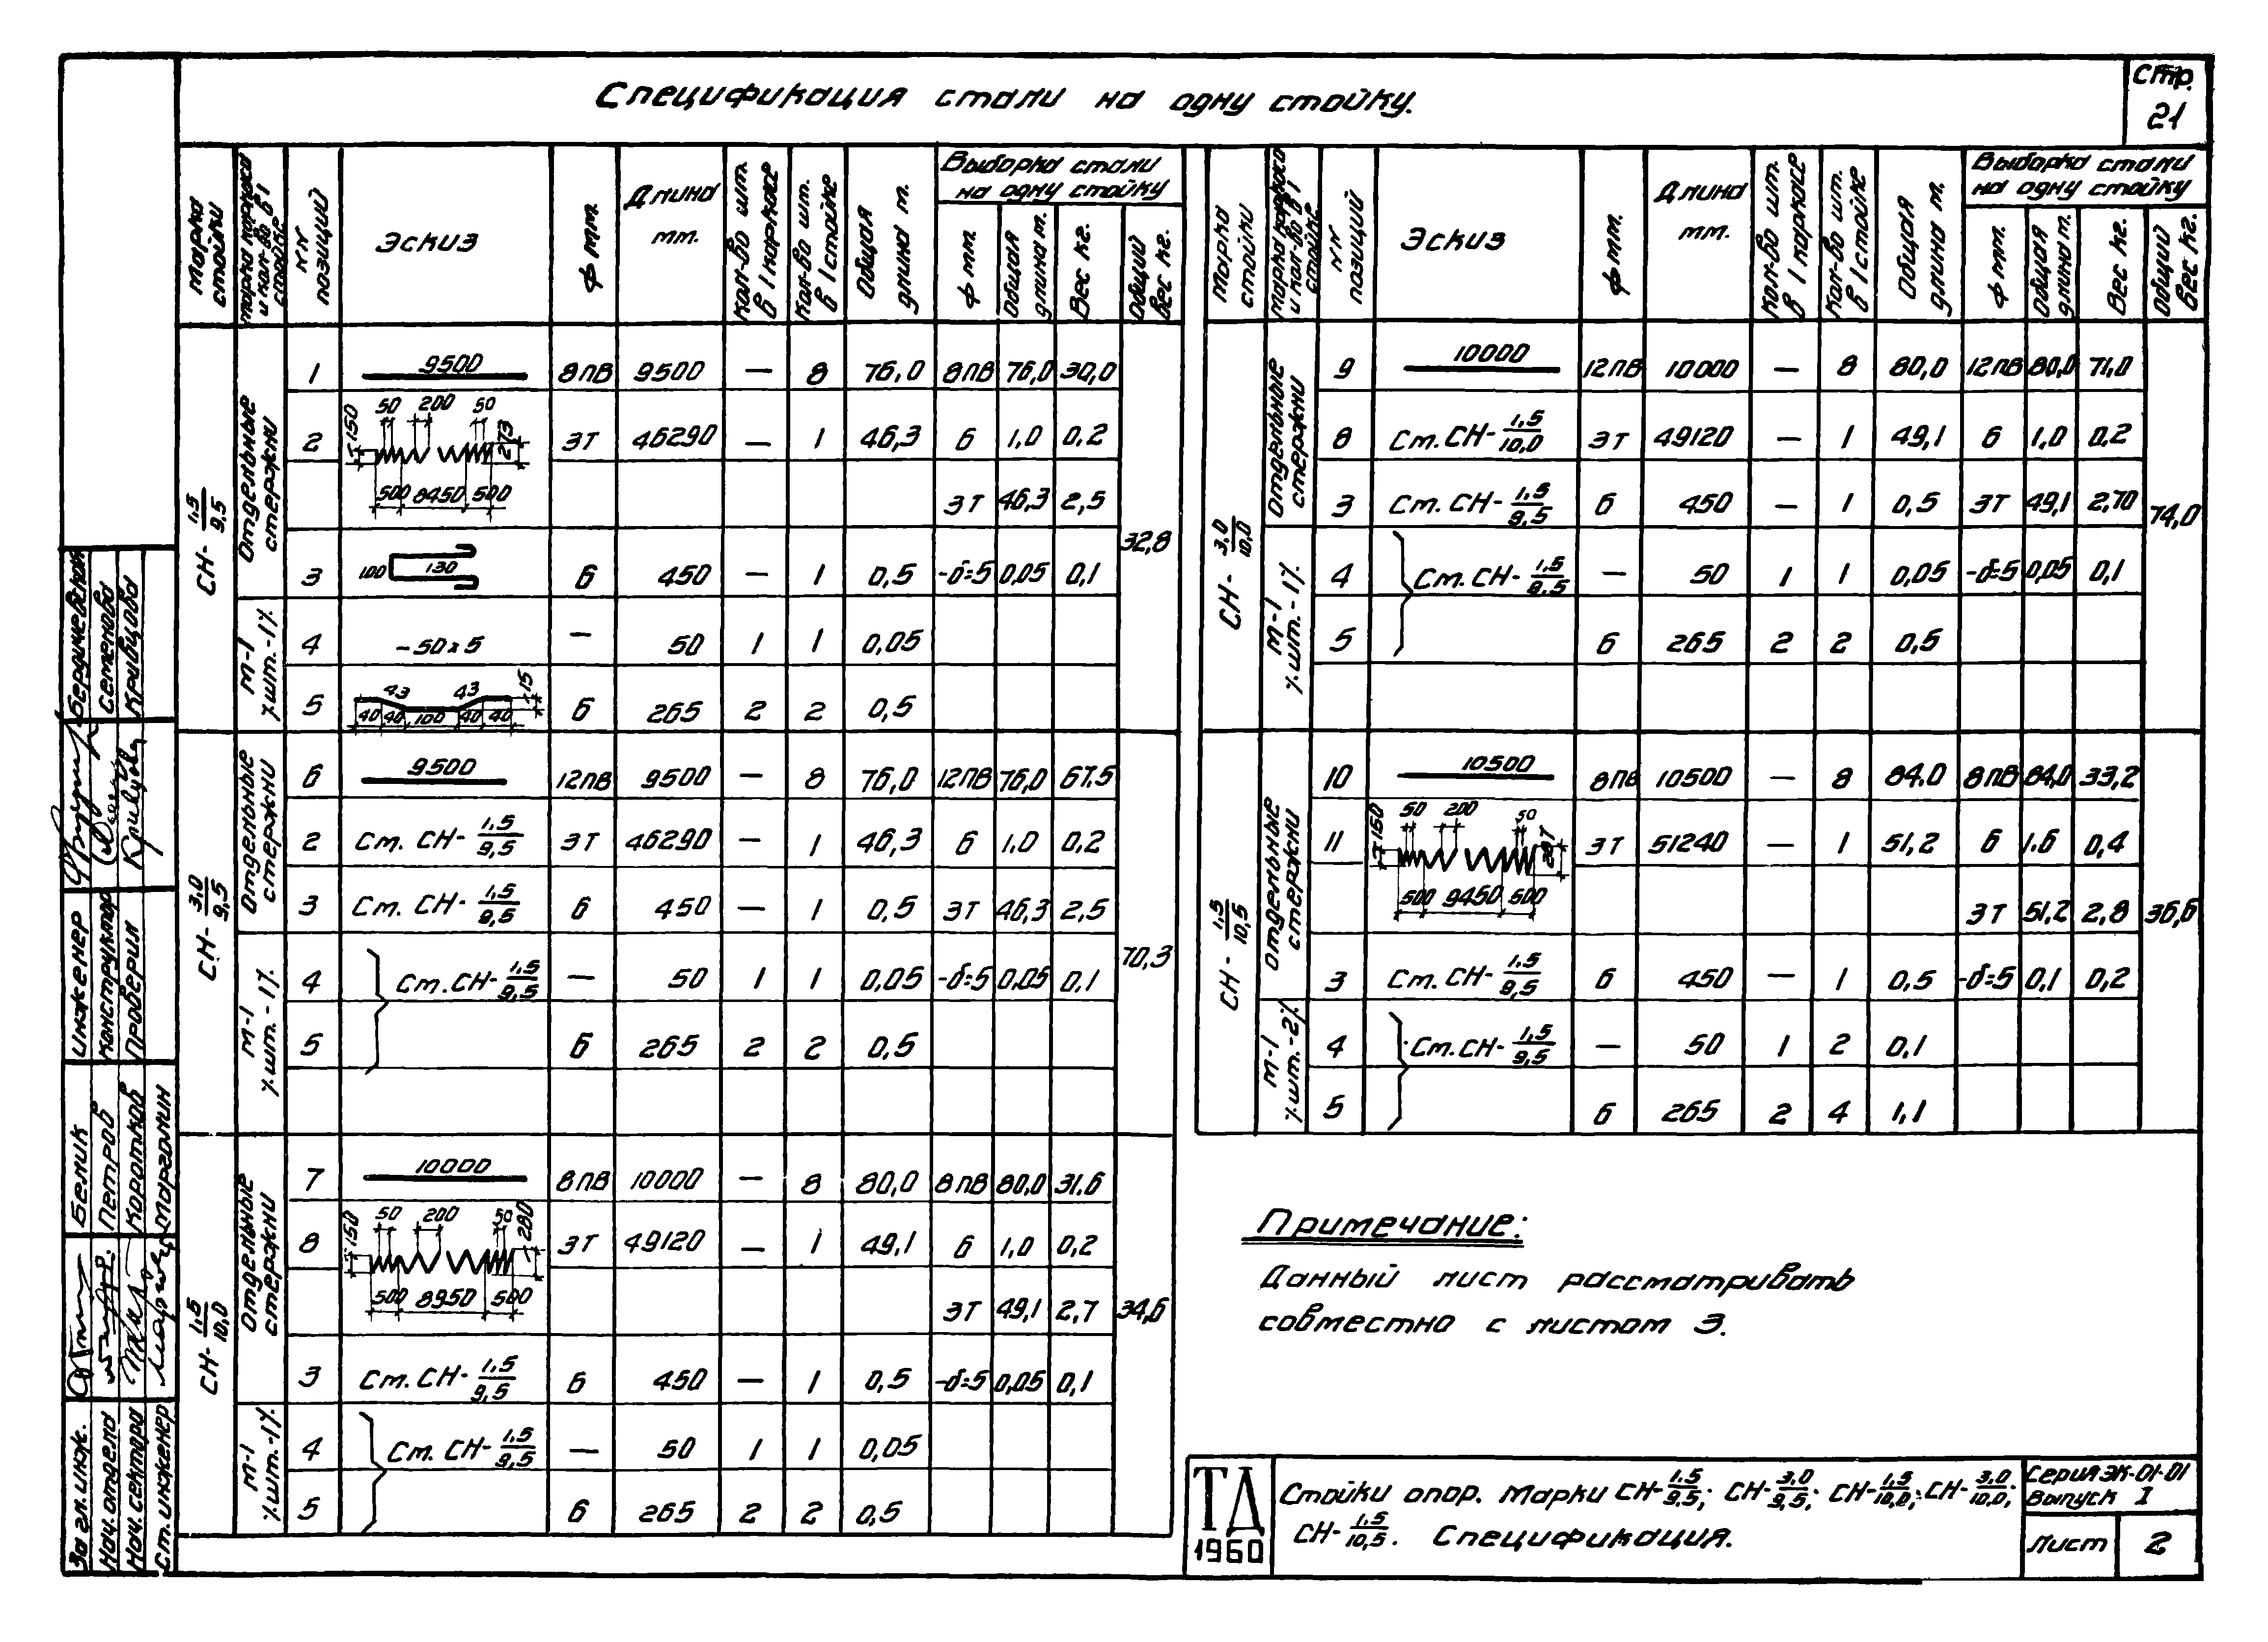 Спецификация стали на одну стойку.
Стр.
21
Марка стойки | Марка каркаса и кол-во в 1 стойке | №№ позиций | Эскиз | ф мм. | Длина мм. | Кол-во шт. в 1 каркасе | Кол-во шт. в 1 стойке | Общая длина м. | Выборка стали на одну стойку | ф мм. | Общая длина м. | Вес кг. | Общий вес кг.
СН-1,5/9,5
Отдельные стержни
1 | 9500 | 8ПВ | 9500 | — | 8 | 76,0 | 8ПВ | 76,0 | 30,0 | 32,8
2 | 150 50 200 50 273 500 8450 500 | 3Т | 46290 | — | 1 | 46,3 | 6 | 1,0 | 0,2
3Т | 46,3 | 2,5
3 | 100 130 | 6 | 450 | — | 1 | 0,5 | -δ=5 | 0,05 | 0,1
М-1 шт.-1
4 | -50х5 | — | 50 | 1 | 1 | 0,05
5 | 43 43 15 40 40 100 40 40 | 6 | 265 | 2 | 2 | 0,5
СН-3,0/9,5
Отдельные стержни
6 | 9500 | 12ПВ | 9500 | — | 8 | 76,0 | 12ПВ | 76,0 | 67,5 | 70,3
2 | См. СН-1,5/9,5 | 3Т | 46290 | — | 1 | 46,3 | 6 | 1,0 | 0,2
3 | См. СН-1,5/9,5 | 6 | 450 | — | 1 | 0,5 | 3Т | 46,3 | 2,5
М-1 шт.-1
4 | См. СН-1,5/9,5 | — | 50 | 1 | 1 | 0,05 | -δ=5 | 0,05 | 0,1
5 | 6 | 265 | 2 | 2 | 0,5
СН-1,5/10,0
Отдельные стержни
7 | 10000 | 8ПВ | 10000 | — | 8 | 80,0 | 8ПВ | 80,0 | 31,6 | 34,6
8 | 150 50 200 50 280 500 8950 500 | 3Т | 49120 | — | 1 | 49,1 | 6 | 1,0 | 0,2
3Т | 49,1 | 2,7
3 | См. СН-1,5/9,5 | 6 | 450 | — | 1 | 0,5 | -δ=5 | 0,05 | 0,1
М-1 шт.-1
4 | См. СН-1,5/9,5 | — | 50 | 1 | 1 | 0,05
5 | 6 | 265 | 2 | 2 | 0,5
Марка стойки | Марка каркаса и кол-во в 1 стойке | №№ позиций | Эскиз | ф мм. | Длина мм. | Кол-во шт. в 1 каркасе | Кол-во шт. в 1 стойке | Общая длина м. | Выборка стали на одну стойку | ф мм. | Общая длина м. | Вес кг. | Общий вес кг.
СН-3,0/10,0
Отдельные стержни
9 | 10000 | 12ПВ | 10000 | — | 8 | 80,0 | 12ПВ | 80,0 | 71,0 | 74,0
8 | См. СН-1,5/10,0 | 3Т | 49120 | — | 1 | 49,1 | 6 | 1,0 | 0,2
3 | См. СН-1,5/9,5 | 6 | 450 | — | 1 | 0,5 | 3Т | 49,1 | 2,70
М-1 шт.-1
4 | См. СН-1,5/9,5 | — | 50 | 1 | 1 | 0,05 | -δ=5 | 0,05 | 0,1
5 | 6 | 265 | 2 | 2 | 0,5
СН-1,5/10,5
Отдельные стержни
10 | 10500 | 8ПВ | 10500 | — | 8 | 84,0 | 8ПВ | 84,0 | 33,2 | 36,6
11 | 150 50 200 50 500 9450 500 | 3Т | 51240 | — | 1 | 51,2 | 6 | 1,6 | 0,4
3Т | 51,2 | 2,8
3 | См. СН-1,5/9,5 | 6 | 450 | — | 1 | 0,5 | -δ=5 | 0,1 | 0,2
М-1 шт.-2
4 | См. СН-1,5/9,5 | — | 50 | 1 | 2 | 0,1
5 | 6 | 265 | 2 | 4 | 1,1
Примечание:
Данный лист рассматривать
совместно с листом 3.
ТД
1960
Стойки опор. Марки СН-1,5/9,5; СН-3,0/9,5; СН-1,5/10,0; СН-3,0/10,0;
СН-1,5/10,5. Спецификация.
Серия ЭК-01-01
Выпуск I
Лист 2
Бердичевский
Семенова
Кривцова
инженер
Конструктор
Проверил
Белик
Петров
Коротков
Марголин
За гл. инж.
Нач. отдела
Нач. сектора
Ст. инженер